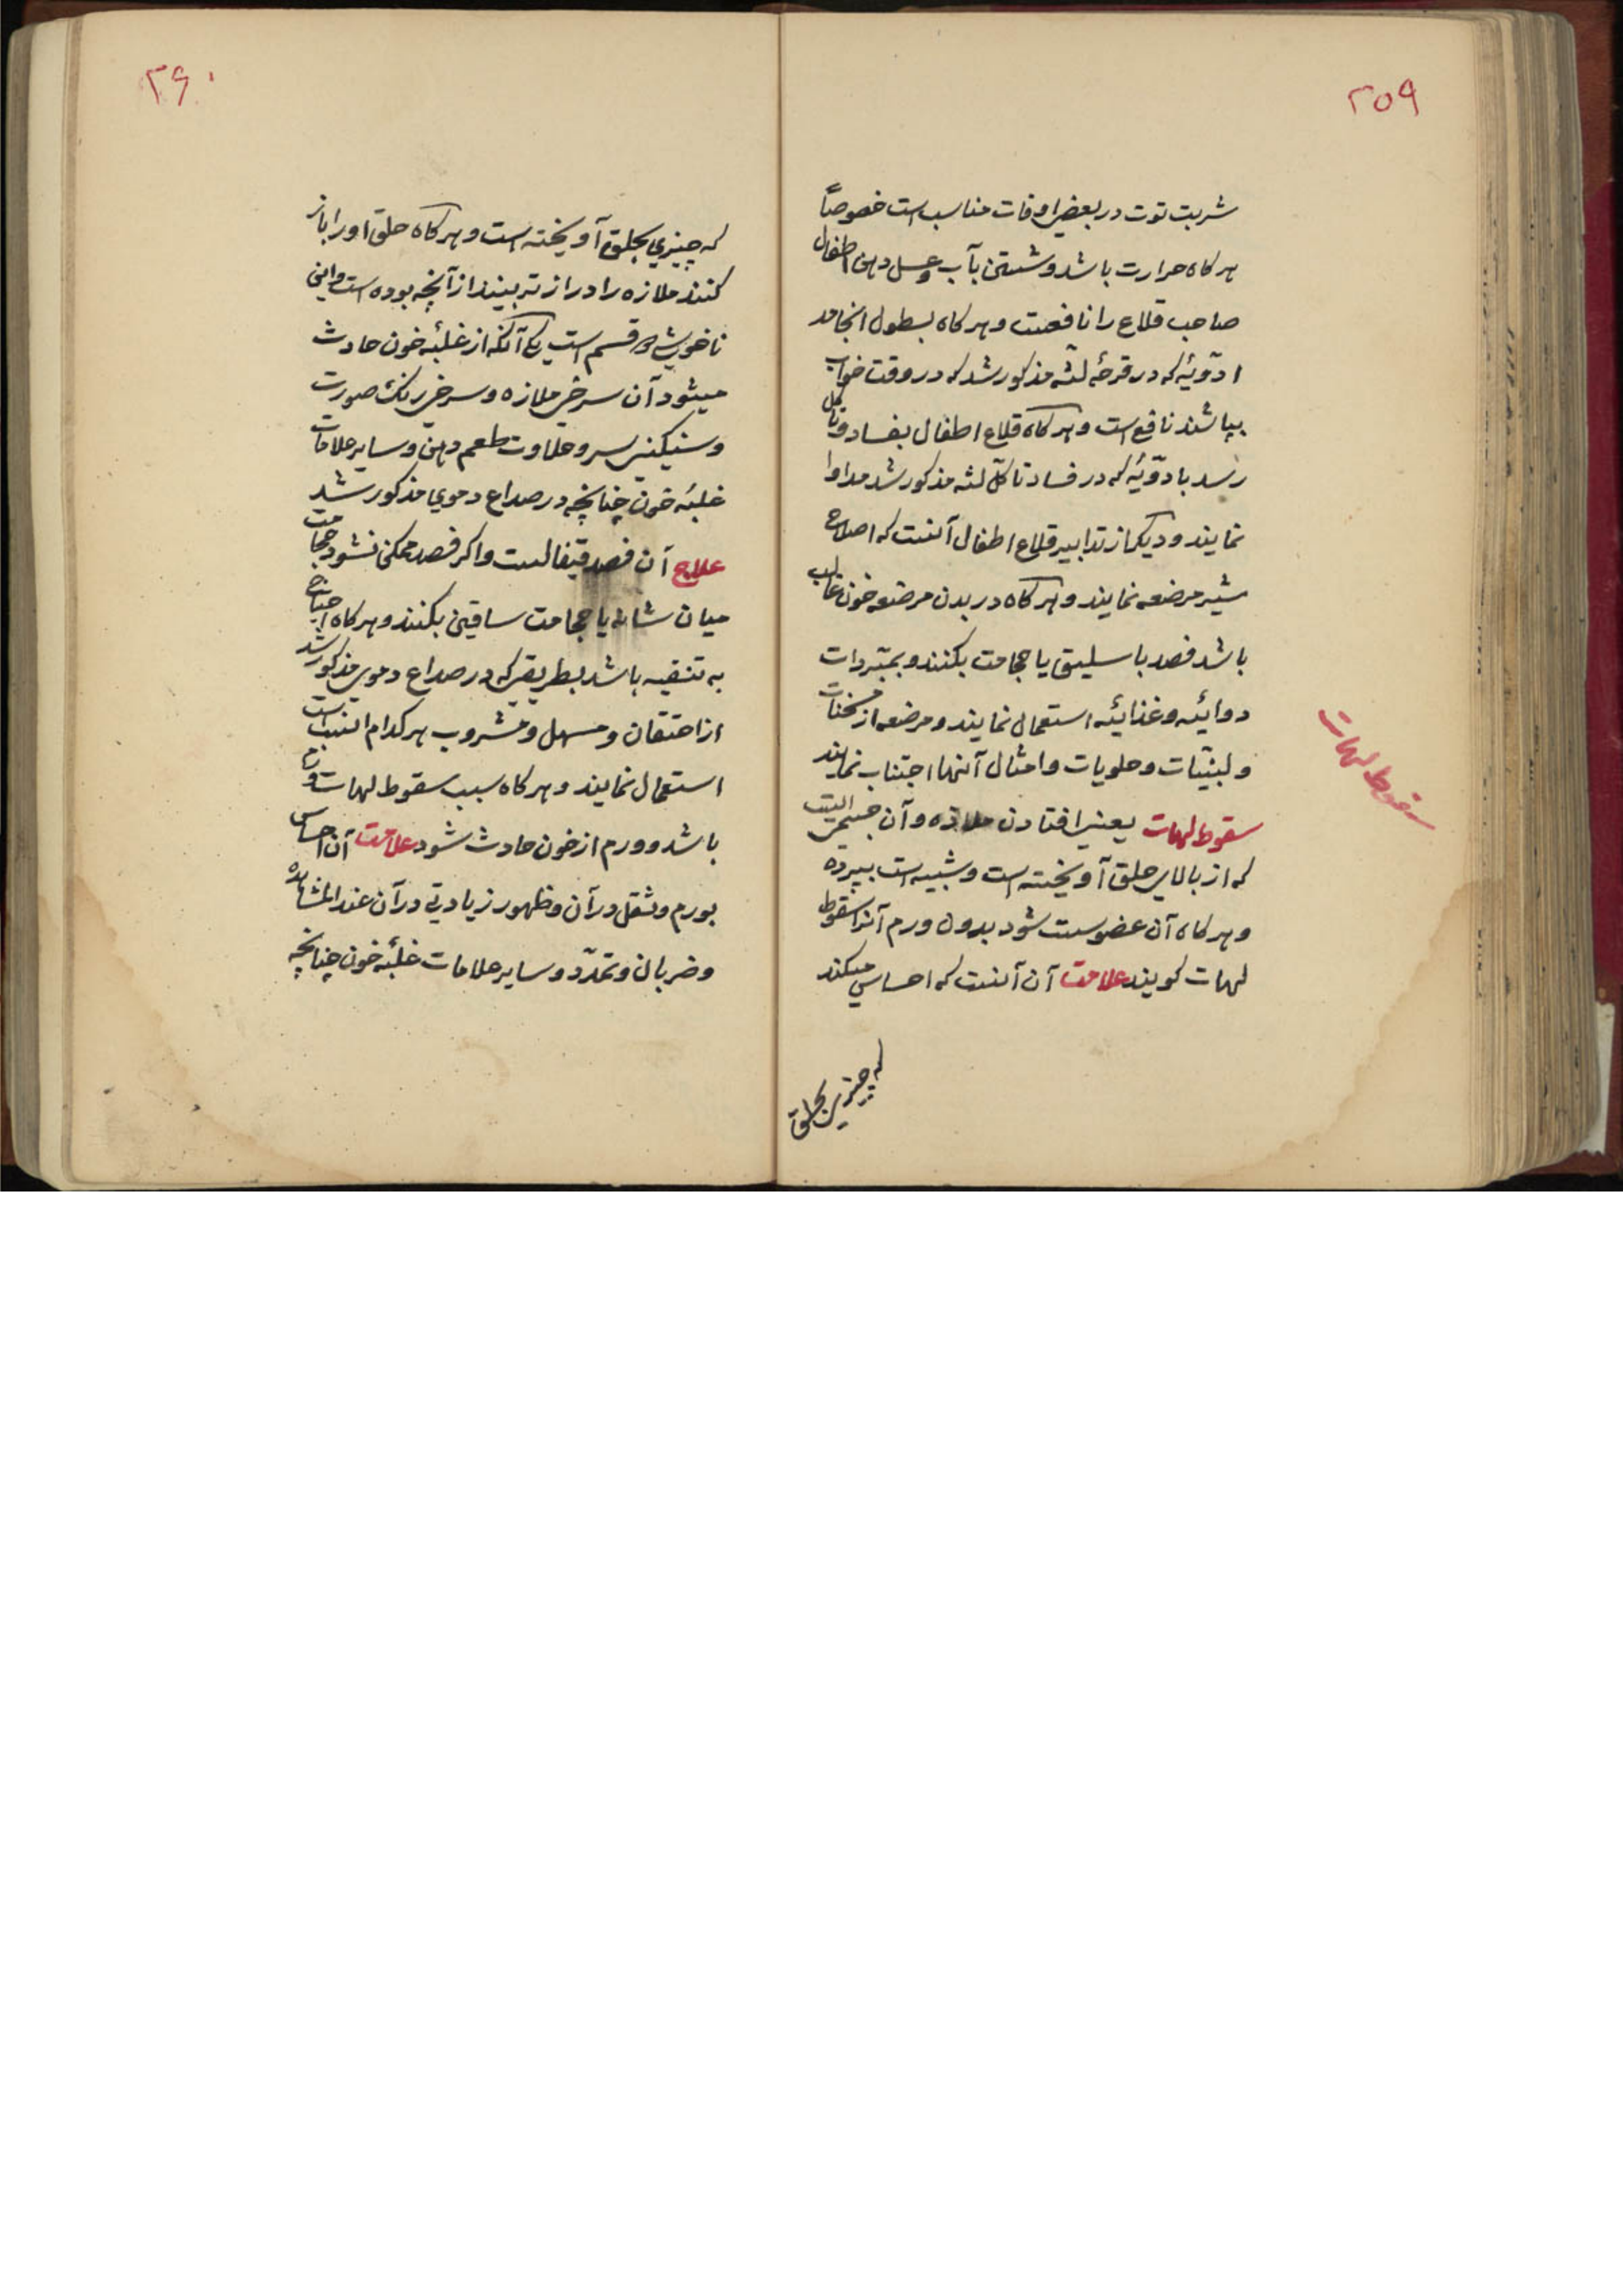 ۲۵۹
شربت توت در بعضی اوقات مناسب است خصوصاً
هرکاه حرارت باشد و شستن بآب و عسل دهن اطفال
صاحب قلاع را نافعست و هرکاه بطول انجامد
ادویّهٔ که در قرحهٔ لثه مذکور شد که در وقت خواب
بپاشند نافع است و هرکاه قلاع اطفال بفساد و تاکل
رسد بادویّهٔ که در فساد تاکل لثه مذکور شد مداوا
نمایند و دیکر از تدابیر قلاع اطفال آنست که اصلاح
شیر مرضعه نمایند و هرکاه در بدن مرضعه خون غالب
باشد فصد باسلیق یا حجامت بکنند و بمبّردات
دوائیه و غذائیه استعمال نمایند و مرضعه از مسخنات
و لبنیّات و حلویات و امثال آنها اجتناب نمایند
سقوط لهات یعنی افتادن ملازه و آن جسمی است
که از بالای حلق آویخته است و شبیه است بپرده
و هرکاه آن عضو سست شود بدون ورم آنرا سقوط
لهات کویند علامت آن آنست که احساس میکند
که چیزی بحلق
سقوط لهات
۲۶۰
که چیزی بحلق آویخته است و هرکاه حلق او را باز
کنند ملازه را درازتر بینند از آنچه بوده است و این
ناخوشی قسم است یکی آنکه از غلبهٔ خون حادث
میشود آن سرخی ملازه و سرخی رنک صورت
و سنیکنی سر و حلاوت طعم دهن و سایر علامات
غلبهٔ خون چنانچه در صداع دموی مذکور شد
علاج آن فصد قیفالست و اکر فصد ممکن نشود حجامت
میان شانه یا حجامت ساقین بکنند و هرکاه احتیاج
به تنقیه باشد بطریقی که در صداع دموی مذکور شد
از احتقان و مسهل و مشروب هرکدام انسب است
استعمال نمایند و هرکاه سبب سقوط لهات ورم
باشد و ورم از خون حادث شود علامت آن احساس
بورم و ثقل در آن و ظهور زیادتی در آن عند المشاهده
و ضربان و تمدّد و سایر علامات غلبهٔ خون چنانچه